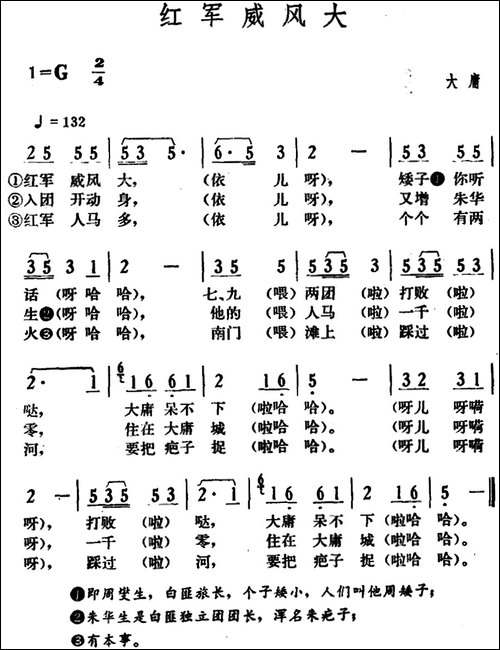 红军威风大
1=G 2/4
大庸
♩=132
2 5 5 5 | 5 3 5· | (6·5 3 | 2 — | 5 3 5 5 |
①红军 威风 大, (依 儿 呀), 矮子❶你听
②入团 开动 身, (依 儿 呀), 又增 朱华
③红军 人马 多, (依 儿 呀), 个个 有两
3 5 3 1 | 2 — | 3 5 5 5 | 5 3 5 3 | 5 3 5 5 |
话(呀 哈 哈), 七、九(喂)两团(啦)打败(啦)
生❷(呀 哈 哈), 他的(喂)人马(啦)一千(啦)
火❸(呀 哈 哈), 南门(喂)滩上(啦)踩过(啦)
2· 1 | 1 6 6 1 | 2 1 6 | 5 — | 3 2 3 1 |
哒, 大庸呆不 下(啦哈 哈)。 (呀儿 呀嗬
零, 住在大庸 城(啦哈 哈)。 (呀儿 呀嗬
河, 要把疤子 捉(啦哈 哈)。 (呀儿 呀嗬
2 — | 5 5 3 5 5 | 2· 1 | 1 6 6 1 | 2 1 6 | 5 — ‖
呀), 打败(啦) 哒, 大庸呆不 下(啦哈 哈)。
呀), 一千(啦) 零, 住在大庸 城(啦哈 哈)。
呀), 踩过(啦) 河, 要把疤子 捉(啦哈 哈)。
❶即周燮生,白匪旅长,个子矮小,人们叫他周矮子;
❷朱华生是白匪独立团团长,浑名朱疤子;
❸有本事。